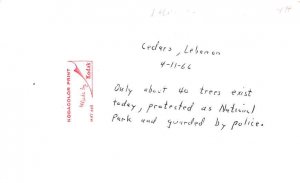 Cedars, Lebanon
4-11-66
Only about 40 trees exist
today, protected as National
Park and guarded by police.
KODACOLOR PRINT
Made by Kodak